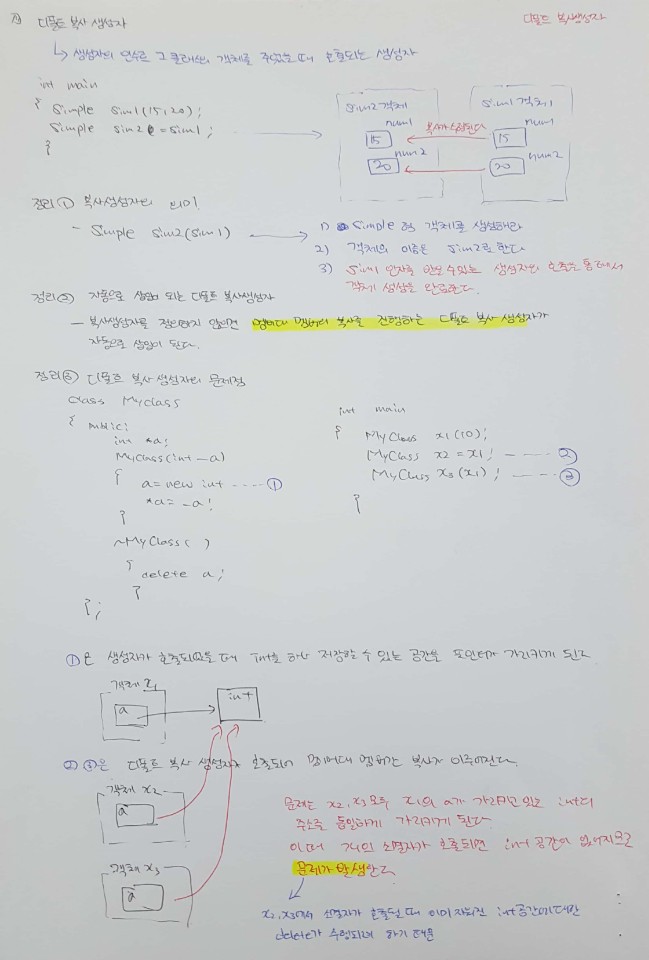 디폴트 복사 생성자
디폴트 복사생성자
↳ 생성자의 인수로 그 클래스의 객체를 주었을 때 호출되는 생성자
int main
{ Simple sim1(15,20);
Simple sim2 = sim1;
}
sim2객체
num1
15
num2
20
복사가 진행된다
sim1객체
num1
15
num2
20
정리① 복사생성자의 의미
- Simple sim2(sim1)
1) Simple형 객체를 생성해라
2) 객체의 이름은 sim2로 한다
3) sim1 인자를 받을 수 있는 생성자의 호출을 통해서
객체 생성을 완료한다.
정리② 자동으로 삽입 되는 디폴트 복사생성자
- 복사생성자를 정의하지 않으면 멤버대 멤버의 복사를 진행하는 디폴트 복사 생성자가
자동으로 삽입이 된다.
정리③ 디폴트 복사 생성자의 문제점
class MyClass
{ public:
int *a;
MyClass(int _a)
{
a = new int ---- ①
*a = _a;
}
~MyClass( )
{
delete a;
}
};
int main
{ MyClass x1(10);
MyClass x2 = x1; ---- ②
MyClass x3(x1); ---- ③
}
①은 생성자가 호출되었을 때 int를 하나 저장할 수 있는 공간을 포인터가 가리키게 된다
객체 x1
a
int
② ③은 디폴트 복사 생성자가 호출되어 멤버대 멤버간 복사가 이루어진다.
객체 x2
a
객체 x3
a
문제는 x2, x3 모두 x1의 a가 가리키고 있는 int의
주소를 동일하게 가리키게 된다.
이때 객체의 소멸자가 호출되면 int 공간이 없어지므로
문제가 발생한다
x2, x3에서 소멸자가 호출될 때 이미 사라진 int공간에 대한
delete가 수행되려 하기 때문